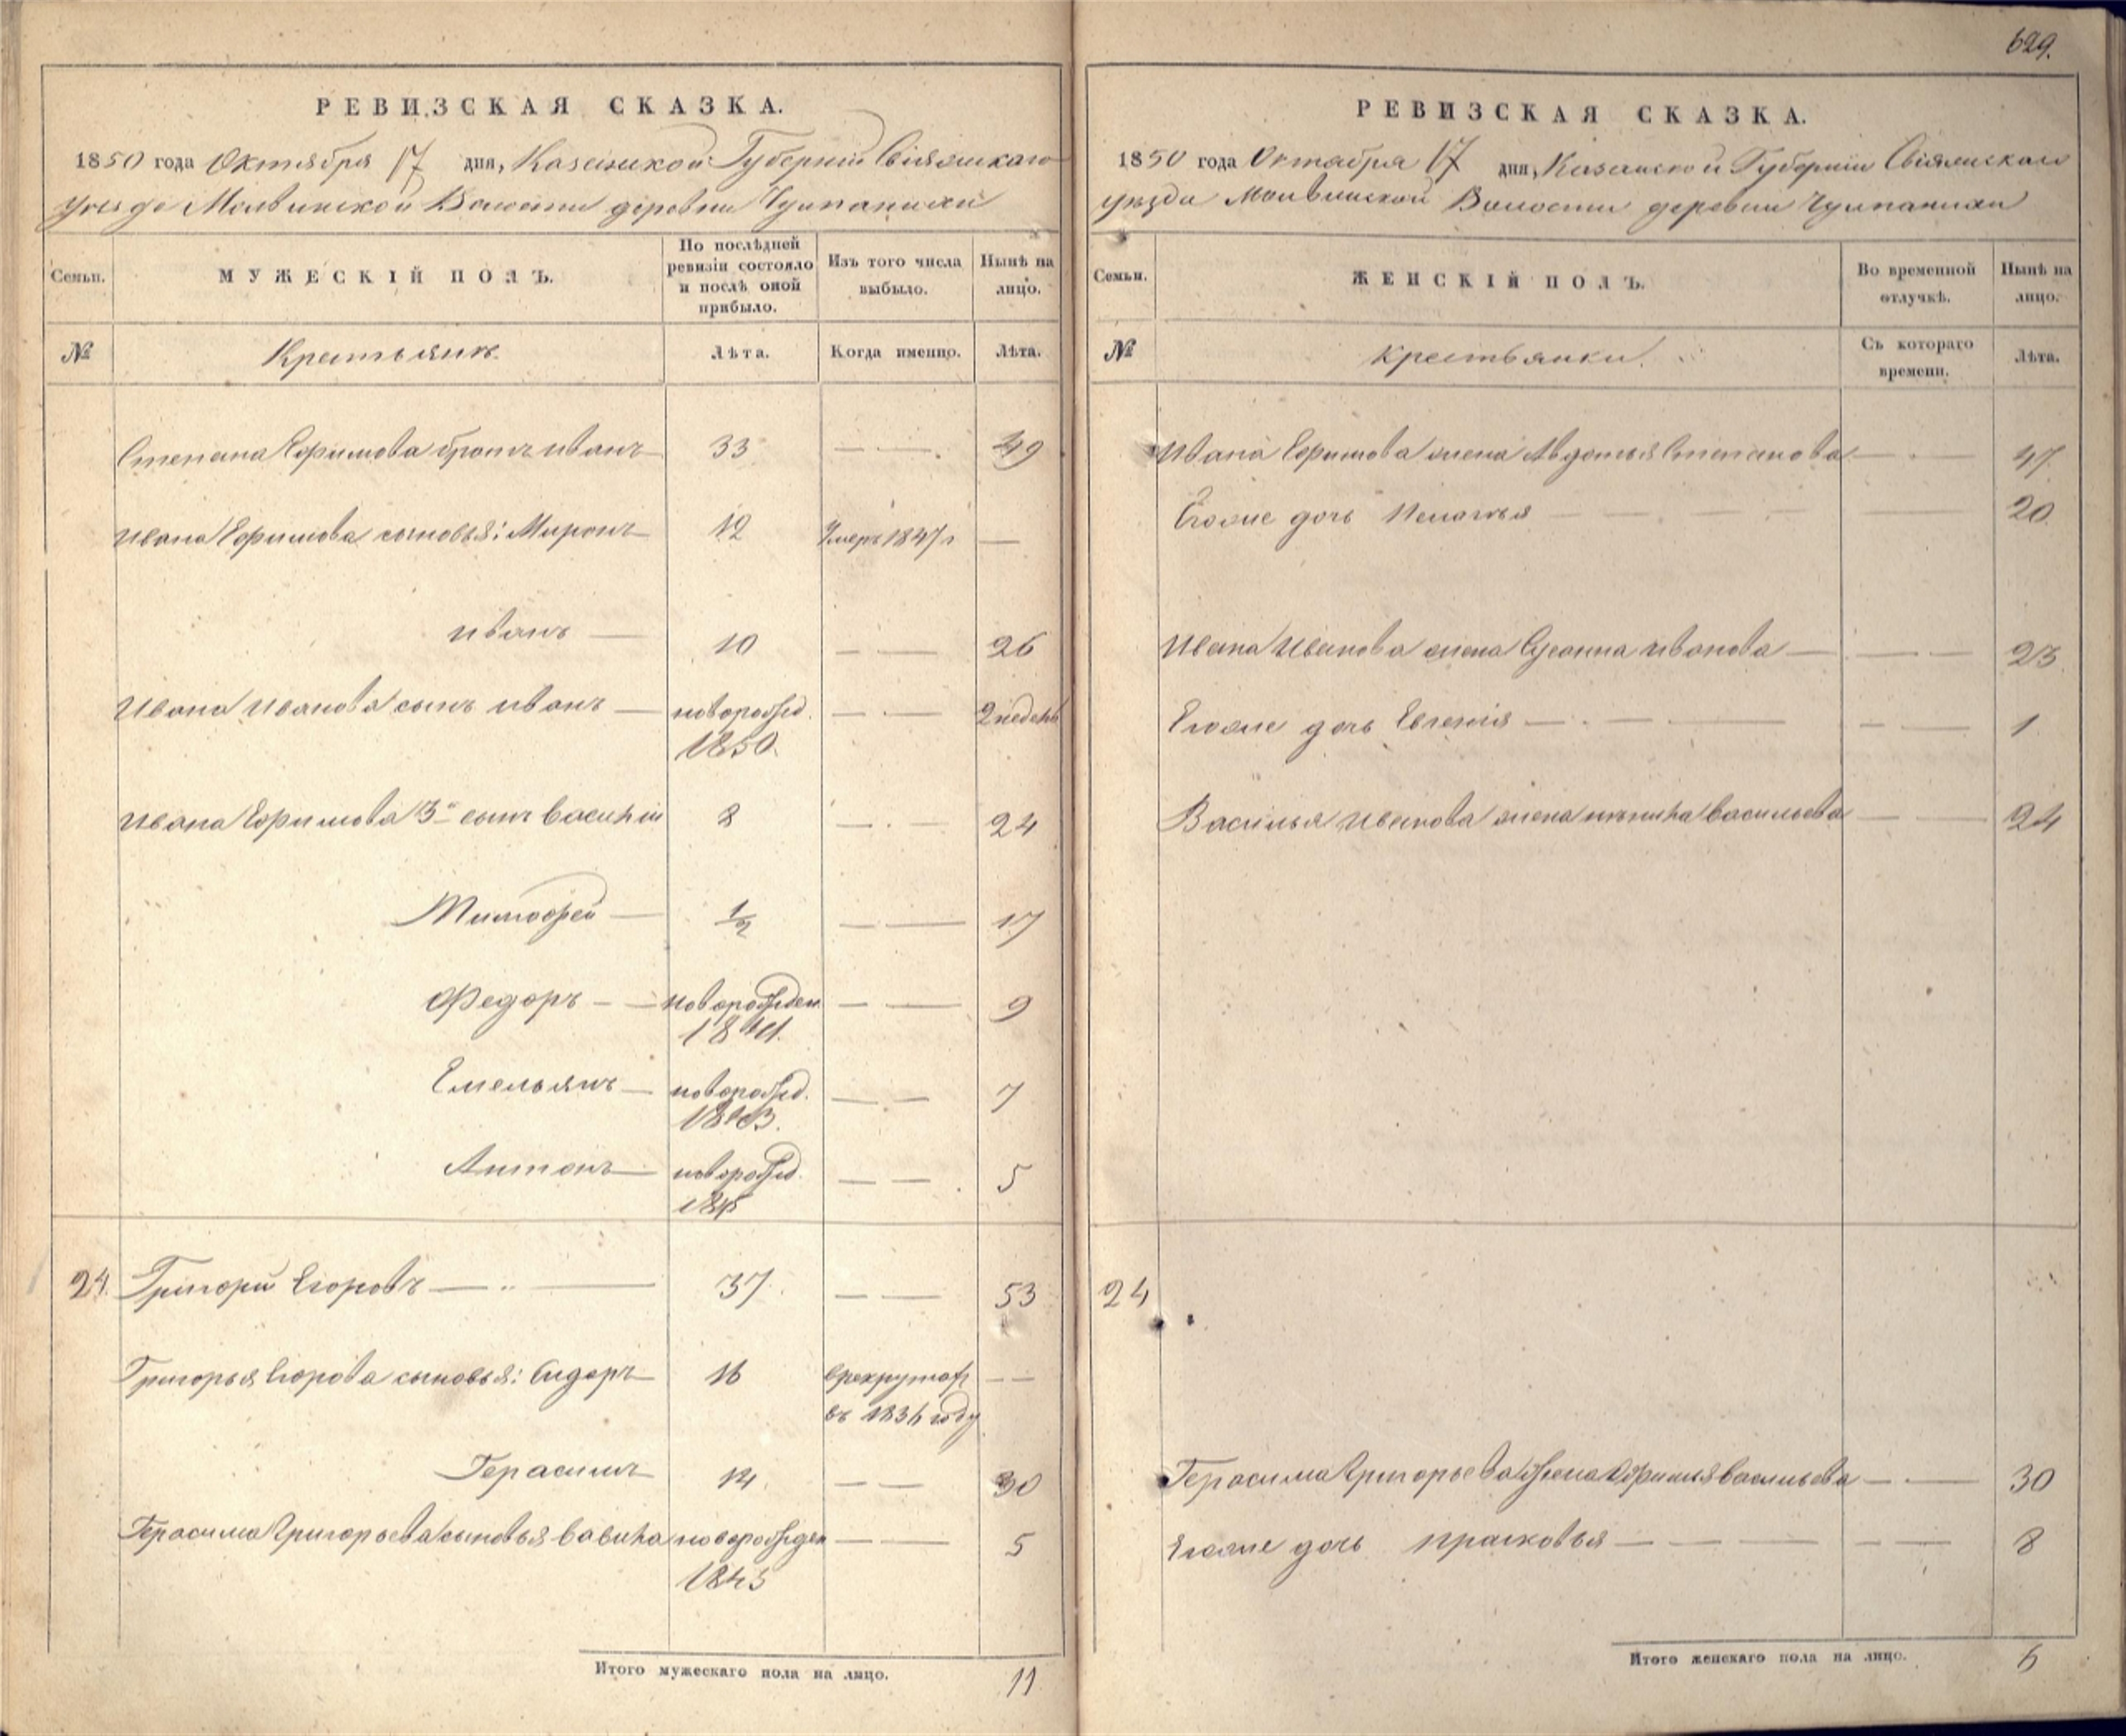 629.
РЕВИЗСКАЯ СКАЗКА.
1850 года Октября 17 дня, Казанской Губернии Свіяжскаго
уезда Молвинской Волости деревни Чулпанихи
Семьи.
МУЖЕСКІЙ ПОЛЪ.
По послѣдней ревизіи состояло и послѣ оной прибыло.
Изъ того числа выбыло.
Нынѣ на лицо.
№
Крестьянъ
Лѣта.
Когда именно.
Лѣта.
Степана Ефимова братъ иванъ 33 49
Ивана Ефимова сыновья: Миронъ 12 Умеръ 1847 г
иванъ 10 26
Ивана Иванова сынъ иванъ новорожд. 2 недель
1850.
Ивана Ефимова 3й сынъ василій 8 24
Тимофей 1/2 17
Федоръ новорожден 9
1841.
Емельянъ новорожд. 7
1843.
Антонъ новорожд. 5
1845
24. Григорій Егоровъ 37 53
Григорья Егорова сыновья: Сидоръ 16 в рекрутах
въ 1834 году
Герасимъ 14 30
Герасима Григорьева сыновья вавила новорожден 5
1845
Итого мужескаго пола на лицо. 11
РЕВИЗСКАЯ СКАЗКА.
1850 года Октября 17 дня, Казанской Губерніи Свіяжскаго
уѣзда Молвинской Волости деревни Чулпанихи
Семьи.
ЖЕНСКІЙ ПОЛЪ.
Во временной отлучкѣ.
Нынѣ на лицо.
№
Крестьянки.
Съ котораго времени.
Лѣта.
Ивана Ефимова жена Авдотья Степанова 47
Егоже дочь Пелагья 20
Ивана Иванова жена Сусанна иванова 23
Егоже дочь Евгенія 1
Василья Иванова жена васильева 24
24
Герасима Григорьева жена Афимья васильева 30
Егоже дочь прасковья 8
Итого женскаго пола на лицо. 6